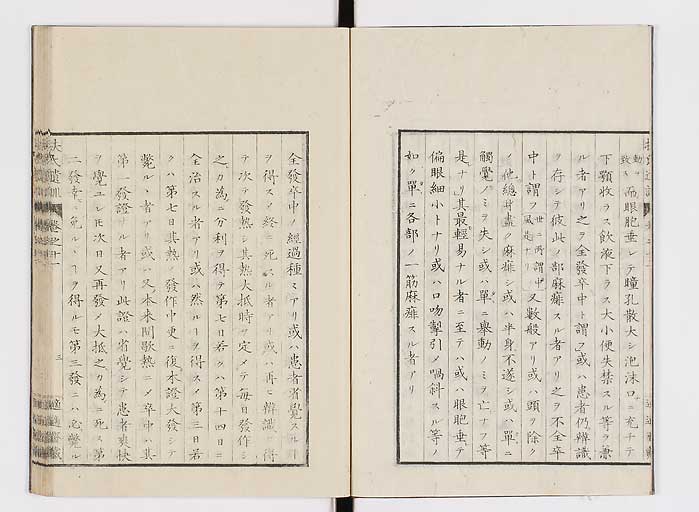 而眼胞垂レテ瞳孔散大シ泡沫口ニ充チテ
下顎收ラス飲液下ラス大小便失禁スル等ヲ兼
ル者アリ之ヲ全發卒中ト謂フ或ハ患者仍辨識
ヲ存シテ彼此ノ部麻痺スル者アリ之ヲ不全卒
中ト謂フ世ニ所謂中風是ナリ又數般アリ或ハ頭ヲ除ク
ノ他總身盡ク麻痺シ或ハ半身不遂シ或ハ單ニ
觸覺ノミヲ失シ或ハ單ニ擧動ノミヲ亡ナフ等
是ナリ其最輕易ナル者ニ至テハ或ハ眼胞垂テ
偏眼細小トナリ或ハ口吻攣引メ喎斜スル等ノ
如ク單ニ各部ノ一筋麻痺スル者アリ
全發卒中ノ經過種々アリ或ハ患者省覺スル
ヲ得スメ終ニ死スル者アリ或ハ再ヒ辨識ヲ得
テ次テ發熱シ其熱大抵時ヲ定メテ毎日發作シ
之カ為ニ分利ヲ得テ第七日若クハ第十四日ニ
全治スル者アリ或ハ然ルヲ得スメ第三日若
クハ第七日其熱ノ發作中更ニ復本證大發シテ
斃ルヽ者アリ或ハ又本来間歇熱ニメ卒中ハ其
第一發證ナル者アリ此證ハ省覺シテ患者爽快
ヲ覺ユレモ次日又再發ノ大抵之カ為ニ死ス第
二發幸ニ免ルヽヲ得ルモ第三發ニハ必斃ル
卷之十一
三